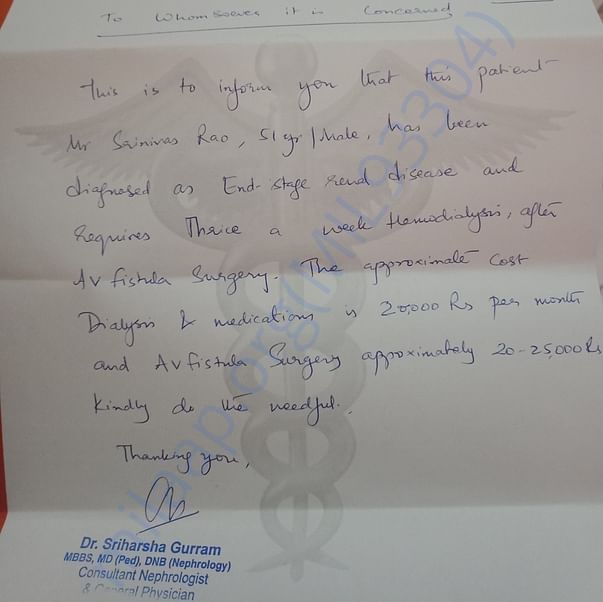 To Whomsoever it is Concerned
This is to inform you that this patient
Mr Srinivas Rao, 51 yr / Male, has been
diagnosed as End-stage renal disease and
requires Thrice a week Hemodialysis, after
AV fistula Surgery. The approximate cost
Dialysis & medications is 20,000 Rs per month
and AV fistula Surgery approximately 20-25,000 Rs
Kindly do the needful.
Thanking you,
Dr. Sriharsha Gurram
MBBS, MD (Ped), DNB (Nephrology)
Consultant Nephrologist
& General Physician
milaap.org(MIL93304)